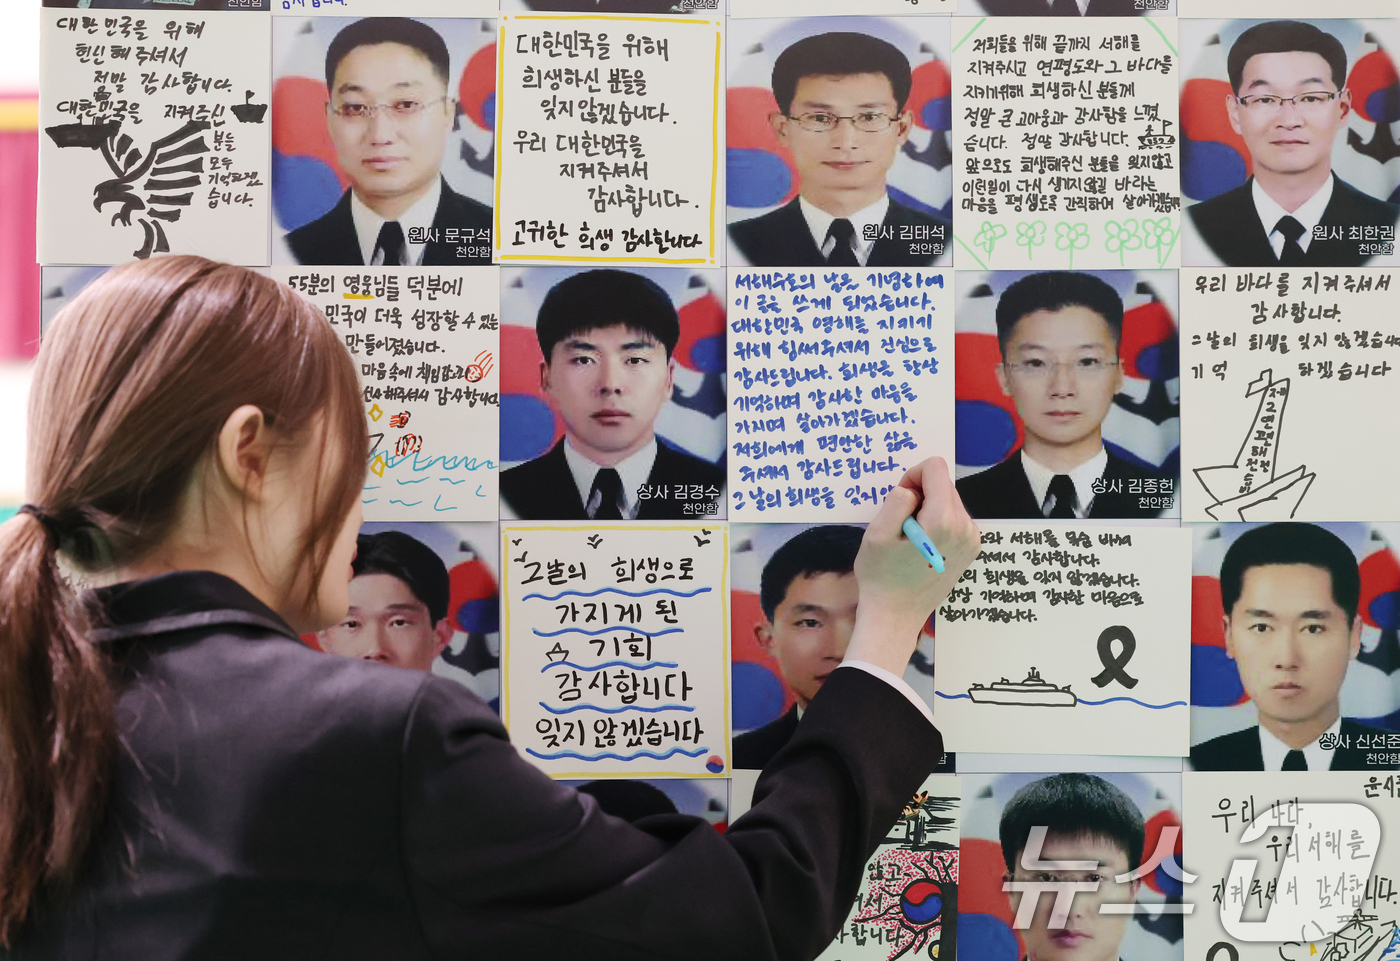 천안함
감사
천안함
천안함
대한민국을 위해
헌신해주셔서
정말 감사합니다.
대한민국을 지켜주신
분들
모두
기억하겠
습니다.
원사 문규석
천안함
대한민국을 위해
희생하신 분들을
잊지 않겠습니다.
우리 대한민국을
지켜주셔서
감사합니다.
고귀한 희생 감사합니다
원사 김태석
천안함
저희들을 위해 끝까지 서해를
지켜주시고 연평도와 그 바다를
지키기위해 희생하신 분들께
정말 큰 고마움과 감사함을 느꼈
습니다. 정말 감사합니다.
앞으로도 희생해주신 분들을 잊지않고
이런일이 다시 생기지 않길 바라는
마음을 평생도록 간직하며 살아가겠습니다
원사 최한권
천안함
55분의 영웅님들 덕분에
민국이 더욱 성장할 수 있는
만들어졌습니다.
마음 속에 책임감과
선사해주셔서 감사합니다.
상사 김경수
천안함
서해수호의 날은 기념하여
이 글을 쓰게 되었습니다.
대한민국 영해를 지키기
위해 힘써주셔서 진심으로
감사드립니다. 희생을 항상
기억하며 감사한 마음을
가지며 살아가겠습니다.
저희에게 평안한 삶을
주셔서 감사드립니다.
그날의 희생을 잊지 않
상사 김종헌
천안함
우리 바다를 지켜주셔서
감사합니다.
그날의 희생을 잊지 않겠습니다
기억 하겠습니다
제2연평해전전승비
그날의 희생으로
가지게 된
기회
감사합니다
잊지 않겠습니다
와 서해를 목숨 바쳐
주셔서 감사합니다.
의 희생을 잊지 않겠습니다.
항상 기억하며 감사한 마음으로
살아가겠습니다.
상사 신선준
천안함
않고
합니다
우리 바다,
우리 서해를
지켜주셔서 감사합니다.
뉴스1